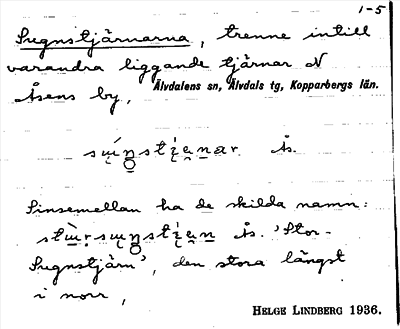 1-5
Sugnstjärnarna, trenne intill
varandra liggande tjärnar N
Åsens by, Älvdalens sn, Älvdals tg, Kopparbergs län.
Ås.
Sinsemellan ha de skilda namn:
Ås. 'Stor-
Sugnstjärn', den stora längst
i norr,
HELGE LINDBERG 1936.